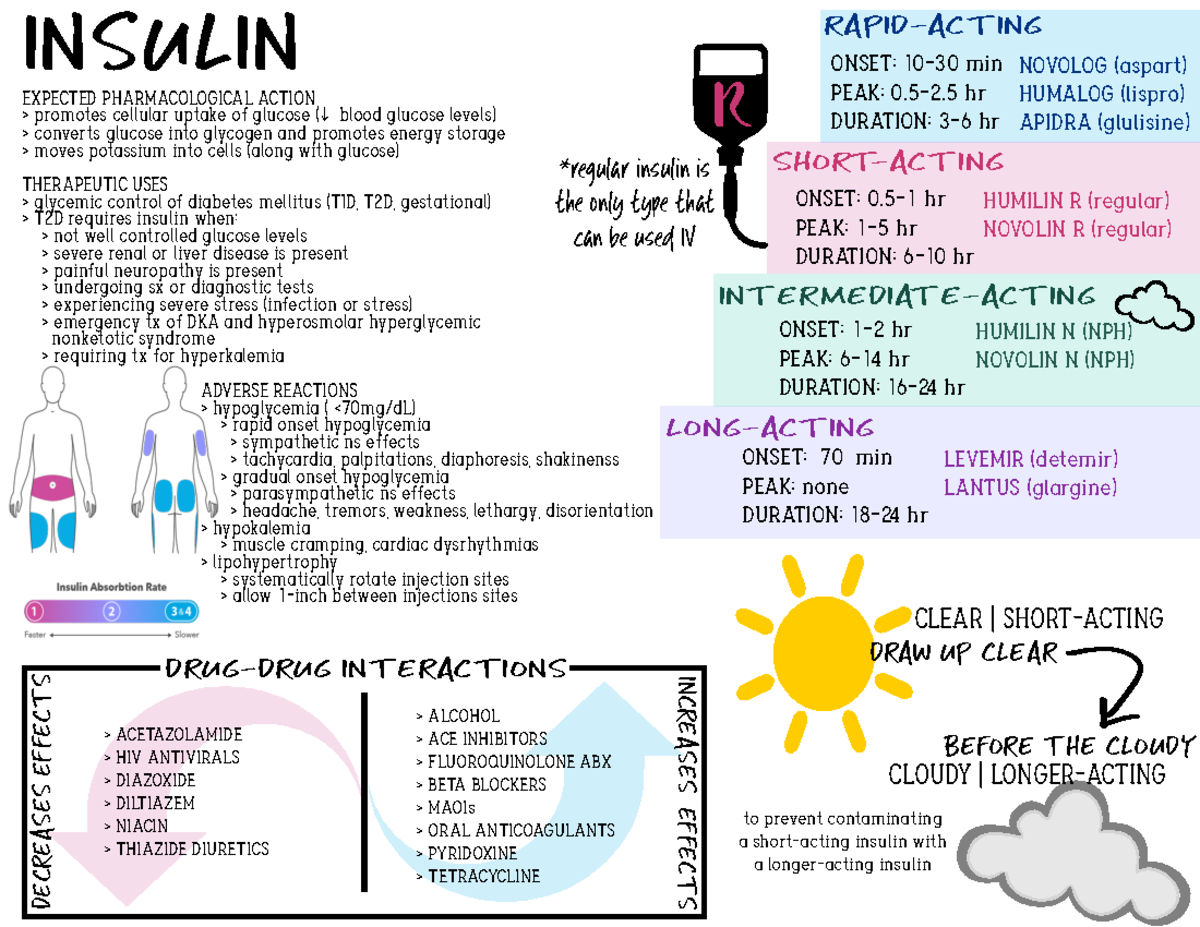 INSULIN
EXPECTED PHARMACOLOGICAL ACTION
> promotes cellular uptake of glucose (↓ blood glucose levels)
> converts glucose into glycogen and promotes energy storage
> moves potassium into cells (along with glucose)
THERAPEUTIC USES
> glycemic control of diabetes mellitus (T1D, T2D, gestational)
> T2D requires insulin when:
> not well controlled glucose levels
> severe renal or liver disease is present
> painful neuropathy is present
> undergoing sx or diagnostic tests
> experiencing severe stress (infection or stress)
> emergency tx of DKA and hyperosmolar hyperglycemic
nonketotic syndrome
> requiring tx for hyperkalemia
ADVERSE REACTIONS
> hypoglycemia ( <70mg/dL)
> rapid onset hypoglycemia
> sympathetic ns effects
> tachycardia, palpitations, diaphoresis, shakinenss
> gradual onset hypoglycemia
> parasympathetic ns effects
> headache, tremors, weakness, lethargy, disorientation
> hypokalemia
> muscle cramping, cardiac dysrhythmias
> lipohypertrophy
> systematically rotate injection sites
> allow 1-inch between injections sites
Insulin Absorbtion Rate
1 2 3&4
Faster Slower
R
*regular insulin is
the only type that
can be used IV
RAPID-ACTING
ONSET: 10-30 min NOVOLOG (aspart)
PEAK: 0.5-2.5 hr HUMALOG (lispro)
DURATION: 3-6 hr APIDRA (glulisine)
SHORT-ACTING
ONSET: 0.5-1 hr HUMILIN R (regular)
PEAK: 1-5 hr NOVOLIN R (regular)
DURATION: 6-10 hr
INTERMEDIATE-ACTING
ONSET: 1-2 hr HUMILIN N (NPH)
PEAK: 6-14 hr NOVOLIN N (NPH)
DURATION: 16-24 hr
LONG-ACTING
ONSET: 70 min LEVEMIR (detemir)
PEAK: none LANTUS (glargine)
DURATION: 18-24 hr
CLEAR | SHORT-ACTING
DRAW UP CLEAR
BEFORE THE CLOUDY
CLOUDY | LONGER-ACTING
to prevent contaminating
a short-acting insulin with
a longer-acting insulin
DRUG-DRUG INTERACTIONS
DECREASES EFFECTS
> ACETAZOLAMIDE
> HIV ANTIVIRALS
> DIAZOXIDE
> DILTIAZEM
> NIACIN
> THIAZIDE DIURETICS
> ALCOHOL
> ACE INHIBITORS
> FLUOROQUINOLONE ABX
> BETA BLOCKERS
> MAOIs
> ORAL ANTICOAGULANTS
> PYRIDOXINE
> TETRACYCLINE
INCREASES EFFECTS